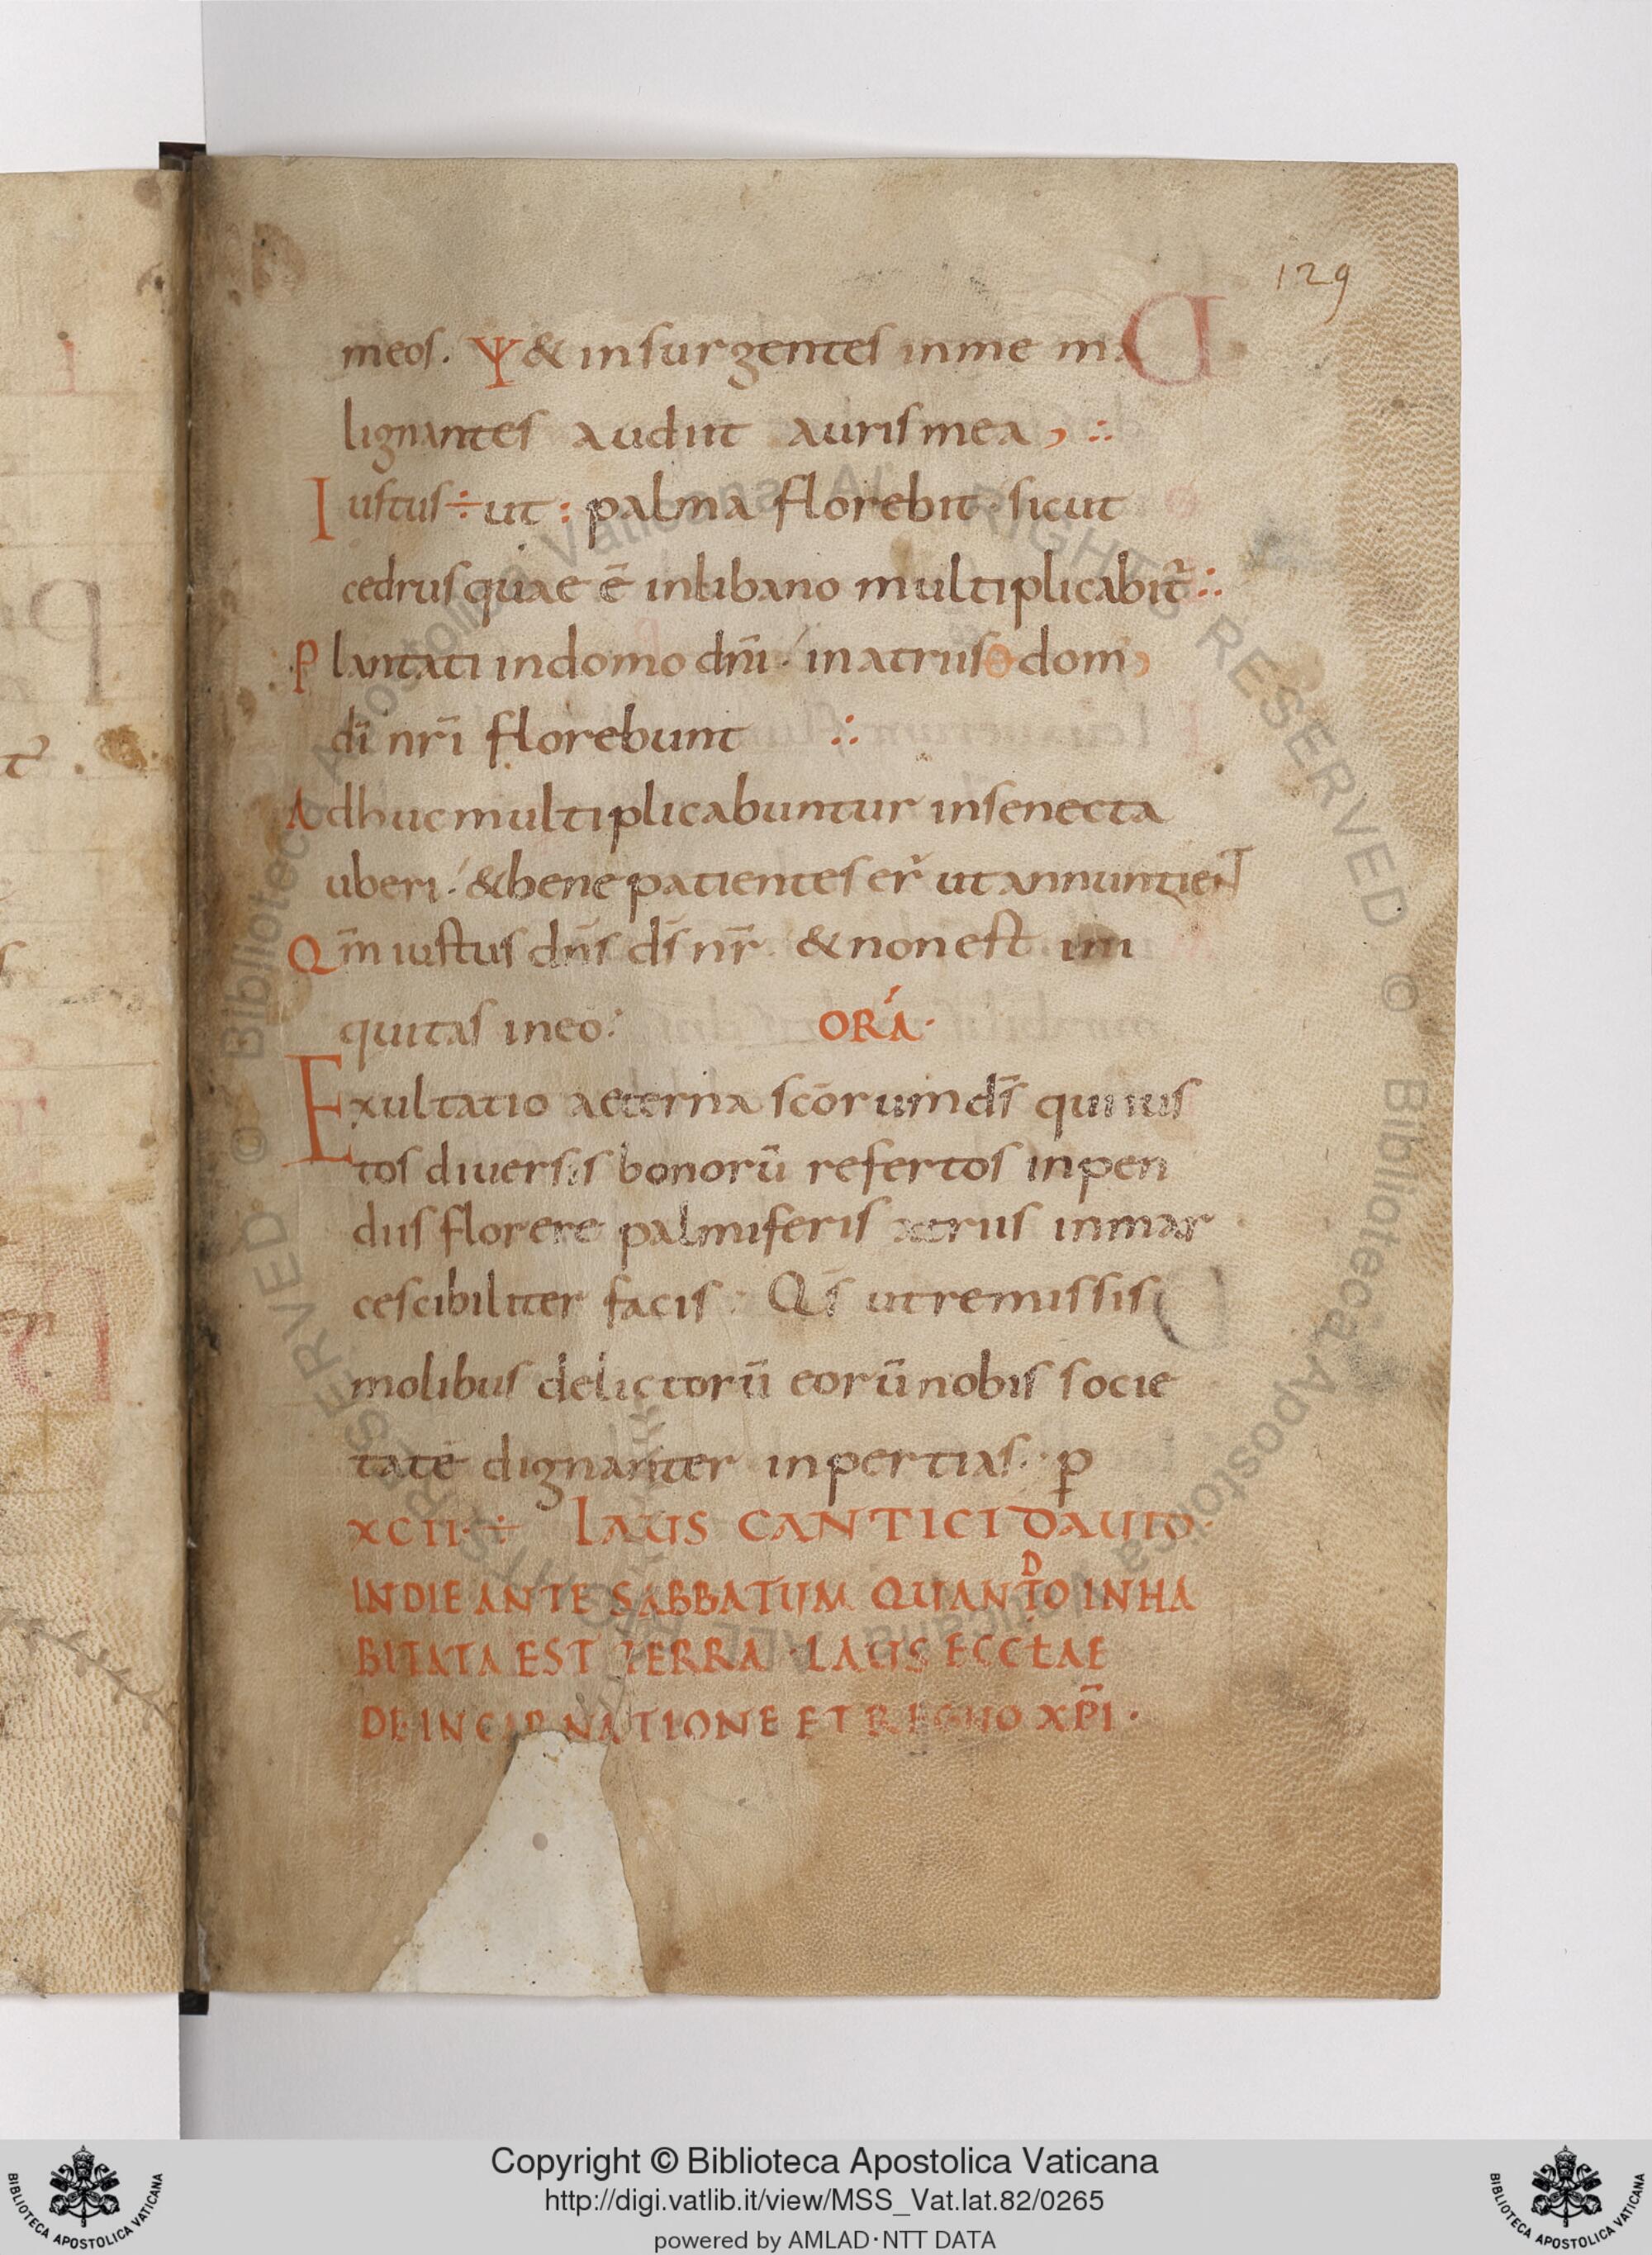 129
meos. Ψ & insurgentes inme ma
lignantes audiit auris mea, :·
Iustus ÷ ut : palma florebit · sicut
cedrus quae ē inlibano multiplicabit̄ :·
Plantati indomo dn̄i · in atriis domꝰ
dī nr̄i florebunt :·
Adhuc multiplicabuntur insenecta
uberi · & bene patientes er̄ ut annuntient
Qm̄ iustus dn̄s ds̄ nr̄ & non est ini
quitas ineo :
ORA·
Exultatio aeterna scōrum ds̄ qui ius
tos diversis bonorū refertos inpen
diis florere palmiferis atriis inmar
cescibiliter facis · Qs̄ ut remissis
molibus delictorū eorū nobis socie
tatē dignanter inpertias · ꝑ
XCII · ÷ LAUS CANTICI DAUID ·
INDIE ANTE SABBATUM QUANTO INHA
D
BITATA EST TERRA · LAUS ECCŁAE
DE INCARNATIONE ET REGNO XP̄I ·
Copyright © Biblioteca Apostolica Vaticana
http://digi.vatlib.it/view/MSS_Vat.lat.82/0265
powered by AMLAD·NTT DATA
BIBLIOTECA APOSTOLICA VATICANA
BIBLIOTECA APOSTOLICA VATICANA
© Biblioteca Apostolica Vaticana ALL RIGHTS RESERVED © Biblioteca Apostolica Vaticana ALL RIGHTS RESERVED